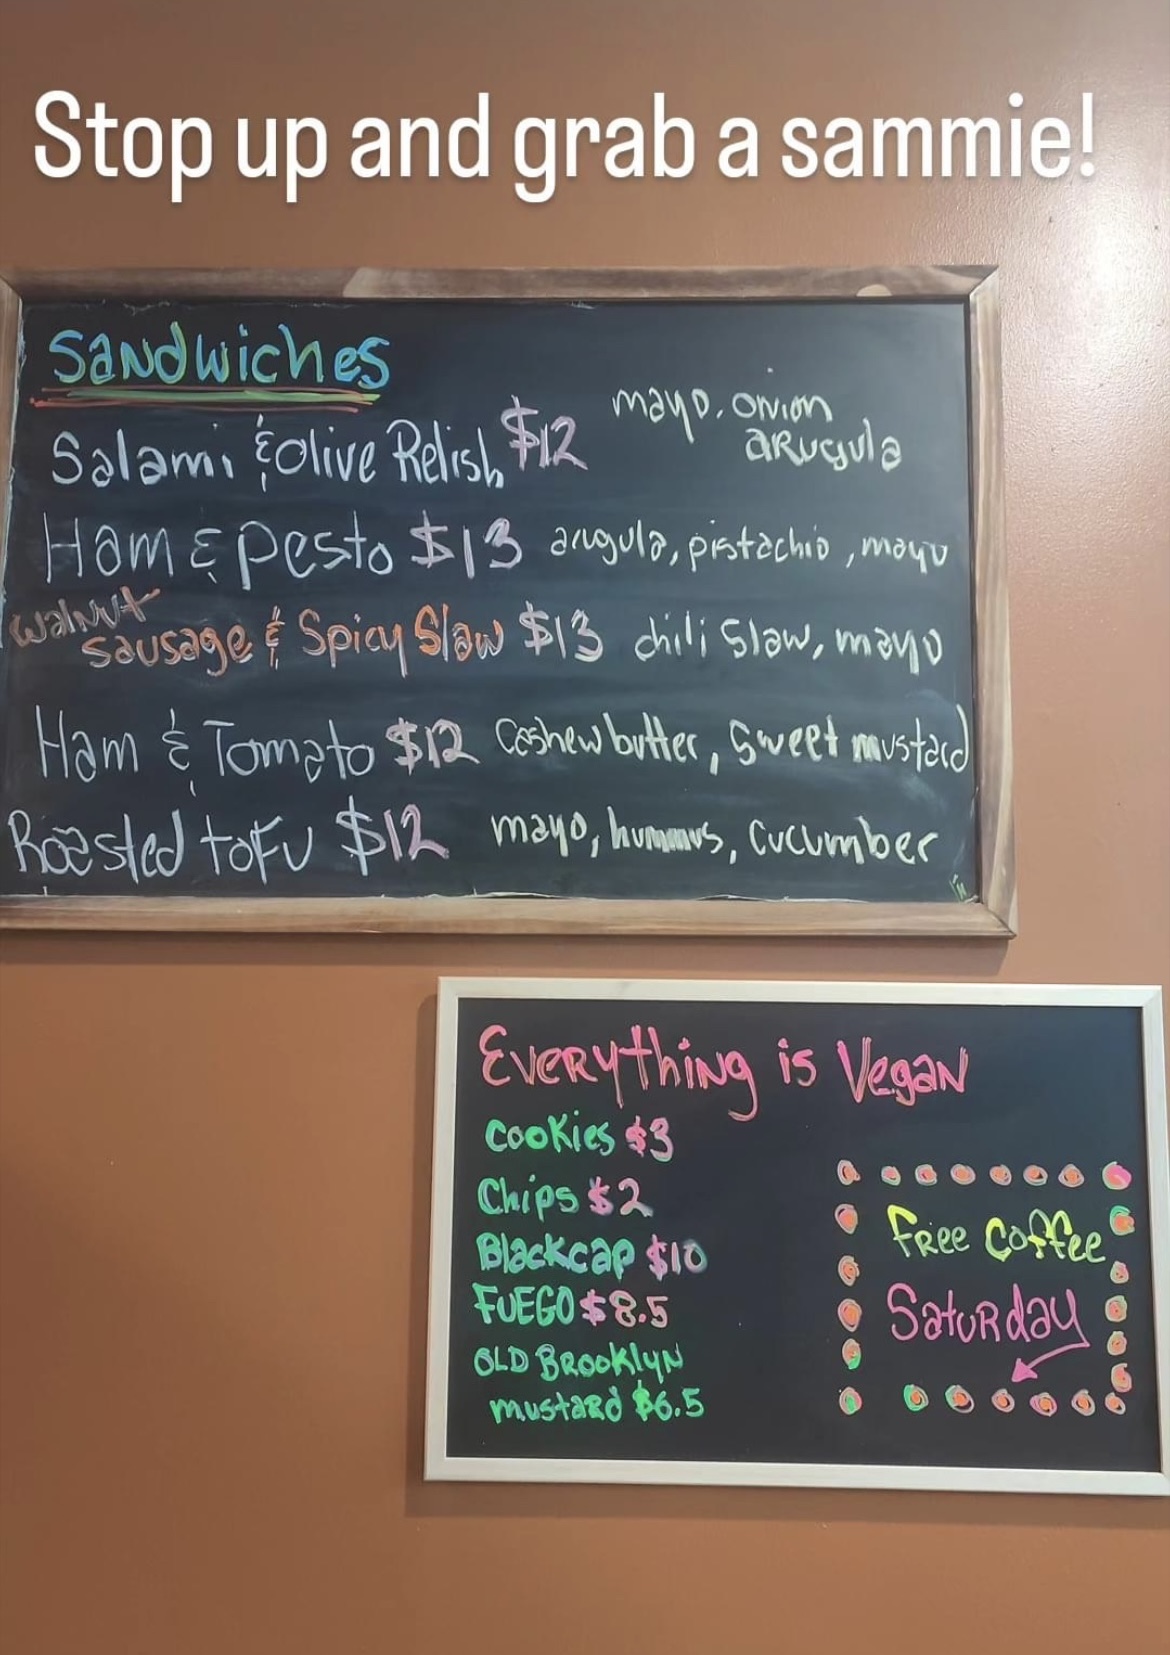 Stop up and grab a sammie!
Sandwiches
Salami & Olive Relish $12 mayo, onion
arugula
Ham & Pesto $13 arugula, pistachio, mayo
Walnut
Sausage & Spicy Slaw $13 chili slaw, mayo
Ham & Tomato $12 Cashew butter, Sweet mustard
Roasted toFu $12 mayo, hummus, cucumber
Everything is Vegan
Cookies $3
Chips $2
Blackcap $10
FUEGO $8.5
OLD BROOKlyN
mustard $6.5
Free Coffee
Saturday